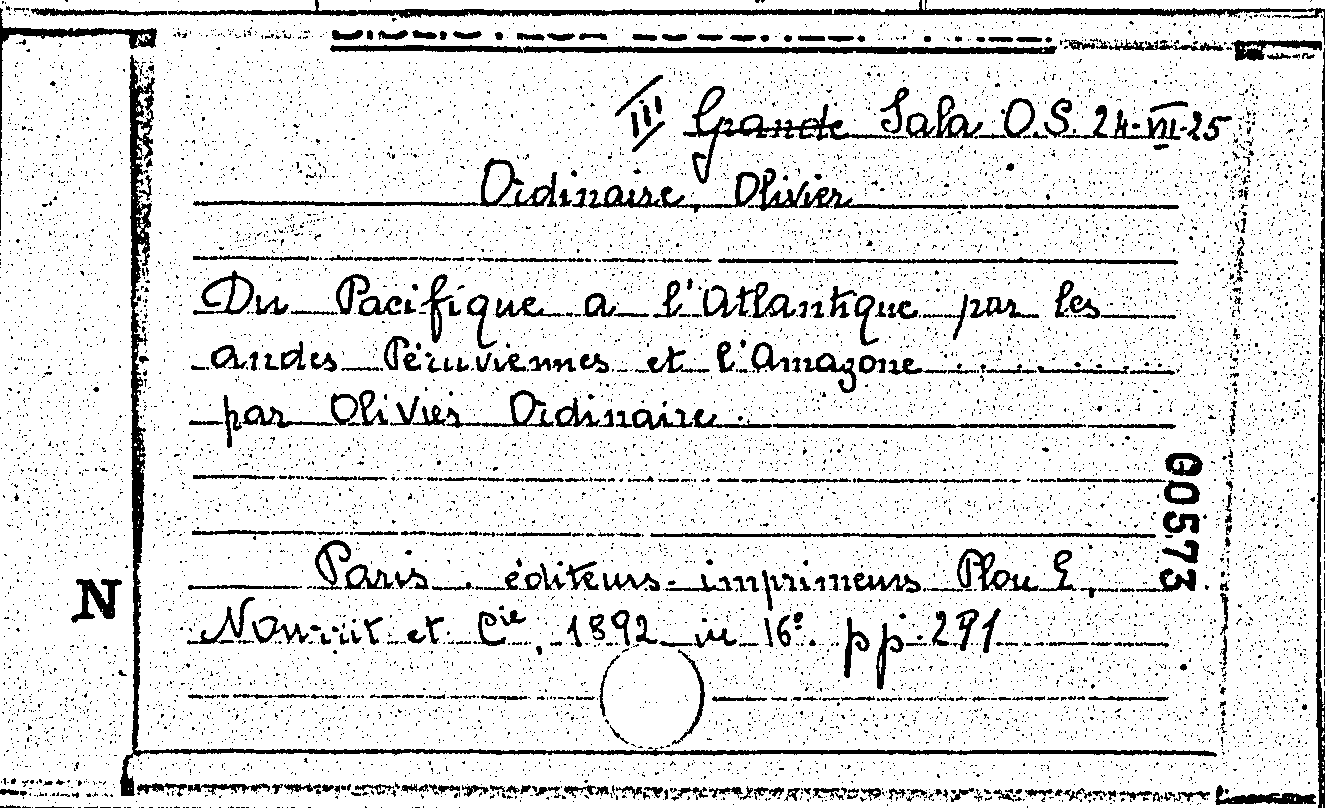 III Grande Sala O.S. 24-VII-25
Ordinaire, Olivier
Du Pacifique a l'Atlantique par les
andes Péruviennes et l'Amazone . . . . . . . . .
par Olivier Ordinaire.
00573
Paris. éditeurs-imprimeurs Plou E,
N
Nourrit et Cie, 1892 in 16º. pp. 291